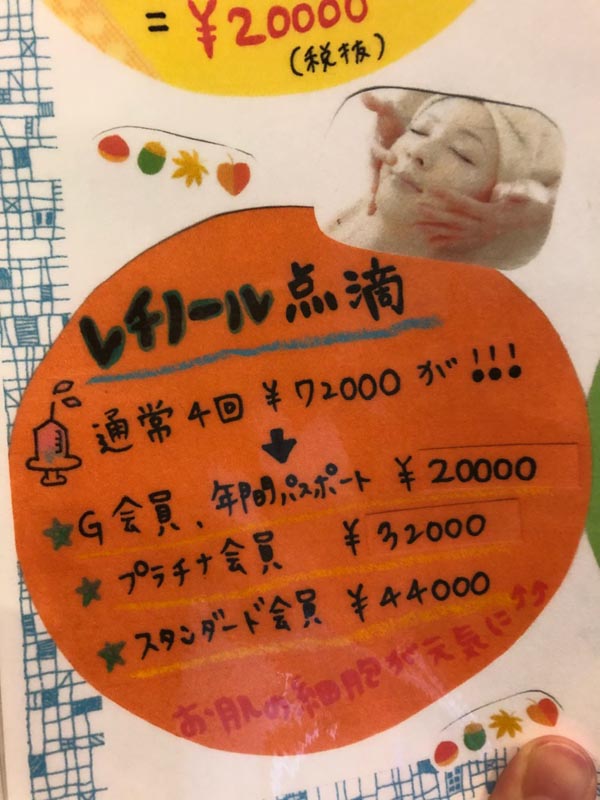 = ¥20000
(税抜)
レチノール点滴
通常4回 ¥72000が!!!
G会員、年間パスポート ¥20000
プラチナ会員 ¥32000
スタンダード会員 ¥44000
お肌の細胞が元気に↑↑